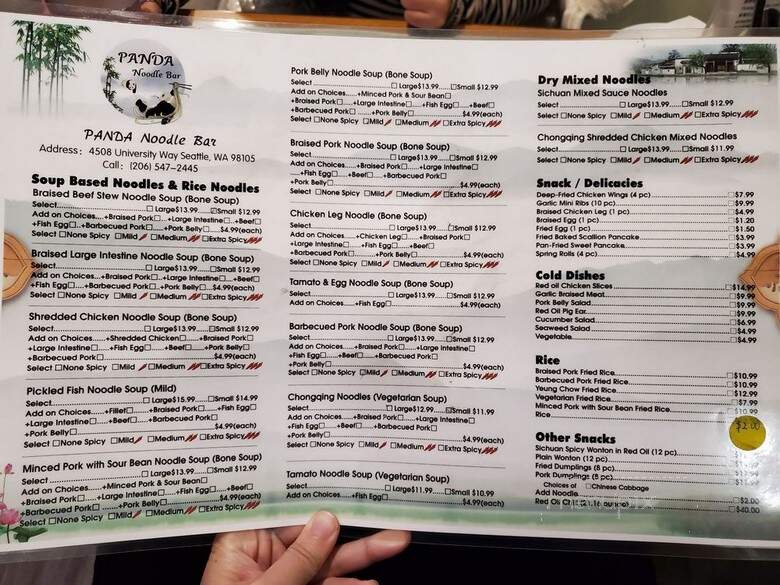 PANDA
Noodle Bar
PANDA Noodle Bar
Address: 4508 University Way Seattle, WA 98105
Call: (206) 547-2445
Soup Based Noodles & Rice Noodles
Braised Beef Stew Noodle Soup (Bone Soup)
Select....□ Large$13.99....□Small $12.99
Add on Choices....+Braised Pork□....+Large Intestine□....+Beef□
+Fish Egg□....+Barbecued Pork□....+Pork Belly□ $4.99(each)
Select □None Spicy □Mild □Medium □Extra Spicy
Braised Large Intestine Noodle Soup (Bone Soup)
Select....□ Large$13.99....□Small $12.99
Add on Choices....+Braised Pork□....+Large Intestine□....+Beef□
+Fish Egg□....+Barbecued Pork□....+Pork Belly□....$4.99(each)
Select □None Spicy □Mild □Medium □Extra Spicy
Shredded Chicken Noodle Soup (Bone Soup)
Select....□ Large$13.99....□Small $12.99
Add on Choices....+Shredded Chicken□....+Braised Pork□
+Large Intestine□....+Fish Egg□....+Beef□....+Pork Belly□
+Barbecued Pork□....$4.99(each)
Select □None Spicy □Mild □Medium □Extra Spicy
Pickled Fish Noodle Soup (Mild)
Select....□ Large$15.99....□Small $14.99
Add on Choices....+Fillet□....+Braised Pork□....+Fish Egg□
+Large Intestine□....+Beef□....+Barbecued Pork□
+Pork Belly□....$4.99(each)
Select □None Spicy □Mild □Medium □Extra Spicy
Minced Pork with Sour Bean Noodle Soup (Bone Soup)
Select....□ Large$13.99....□Small $12.99
Add on Choices....+Minced Pork & Sour Bean□
+Braised Pork□....+Large Intestine□....+Fish Egg□....+Beef□
+Barbecued Pork□....+Pork Belly□....$4.99(each)
Select □None Spicy □Mild □Medium □Extra Spicy
Pork Belly Noodle Soup (Bone Soup)
Select....□ Large$13.99....□Small $12.99
Add on Choices....+Minced Pork & Sour Bean□
+Braised Pork□....+Large Intestine□....+Fish Egg□....+Beef□
+Barbecued Pork□....+Pork Belly□....$4.99(each)
Select □None Spicy □Mild □Medium □Extra Spicy
Braised Pork Noodle Soup (Bone Soup)
Select....□ Large$13.99....□Small $12.99
Add on Choices....+Braised Pork□....+Large Intestine□
....+Fish Egg□....+Beef□....+Barbecued Pork□
+Pork Belly□....$4.99(each)
Select □None Spicy □Mild □Medium □Extra Spicy
Chicken Leg Noodle (Bone Soup)
Select....□ Large$13.99....□Small $12.99
Add on Choices....+Chicken Leg□....+Braised Pork□
+Large Intestine□....+Fish Egg□....+Beef□
+Barbecued Pork□....+Pork Belly□....$4.99(each)
Select □None Spicy □Mild □Medium □Extra Spicy
Tamato & Egg Noodle Soup (Bone Soup)
Select....□ Large$13.99....□Small $12.99
Add on Choices....+Fish Egg□....$4.99(each)
Barbecued Pork Noodle Soup (Bone Soup)
Select....□ Large$13.99....□Small $12.99
Add on Choices....+Braised Pork□....+Large Intestine□
+Fish Egg□....+Beef□....+Barbecued Pork□
+Pork Belly□....$4.99(each)
Select □None Spicy □Mild □Medium □Extra Spicy
Chongqing Noodles (Vegetarian Soup)
Select....□ Large$12.99....□Small $11.99
Add on Choices....+Braised Pork□....+Large Intestine□
+Fish Egg□....+Beef□....+Barbecued Pork□
+Pork Belly□....$4.99(each)
Select □None Spicy □Mild □Medium □Extra Spicy
Tamato Noodle Soup (Vegetarian Soup)
Select....□ Large$11.99....□Small $10.99
Add on Choices....+Fish Egg□....$4.99(each)
Dry Mixed Noodles
Sichuan Mixed Sauce Noodles
Select....□ Large$13.99....□Small $12.99
Select □None Spicy □Mild □Medium □Extra Spicy
Chongqing Shredded Chicken Mixed Noodles
Select....□ Large$13.99....□Small $11.99
Select □None Spicy □Mild □Medium □Extra Spicy
Snack / Delicacies
Deep-Fried Chicken Wings (4 pc)....□$7.99
Garlic Mini Ribs (10 pc)....□$9.99
Braised Chicken Leg (1 pc)....□$4.99
Braised Egg (1 pc)....□$1.20
Fried Egg (1 pc)....□$1.50
Fried Baked Scallion Pancake....□$3.99
Pan-Fried Sweet Pancake....□$3.99
Spring Rolls (4 pc)....□$4.99
Cold Dishes
Red oil Chicken Slices....□$14.99
Garlic Braised Meat....□$9.99
Pork Belly Salad....□$9.99
Red Oil Pig Ear....□$9.99
Cucumber Salad....□$6.99
Seaweed Salad....□$4.99
Vegetable....□$4.99
Rice
Braised Pork Fried Rice....□$10.99
Barbecued Pork Fried Rice....□$10.99
Yeung Chow Fried Rice....□$12.99
Vegetarian Fried Rice....□$11.99
Minced Pork with Sour Bean Fried Rice....□$7.99
Rice....□$10.99
$2.00
Other Snacks
Sichuan Spicy Wonton in Red Oil (12 pc)
Plain Wonton (12 pc)
Fried Dumplings (8 pc)
Pork Dumplings (8 pc)
Choices of □Chinese Cabbage
Add Noodle....□$2.00
Red Oil....□$40.00